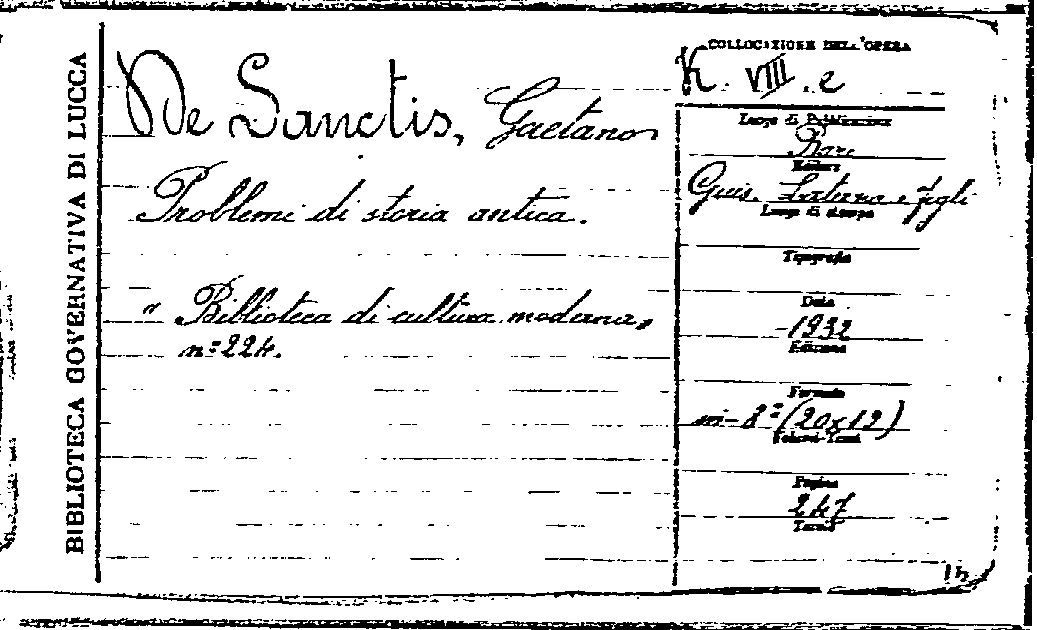 BIBLIOTECA GOVERNATIVA DI LUCCA
De Sanctis, Gaetano
Problemi di storia antica.
" Biblioteca di cultura moderna"
nº 224.
COLLOCAZIONE DELL'OPERA
K. VIII. e
Luogo di Pubblicazione
Bari
Editore
Gius. Laterza e figli
Luogo di stampa
Tipografia
Data
1932
Edizione
Formato
in-8º (20x12)
Volumi-Tomi
Pagine
247